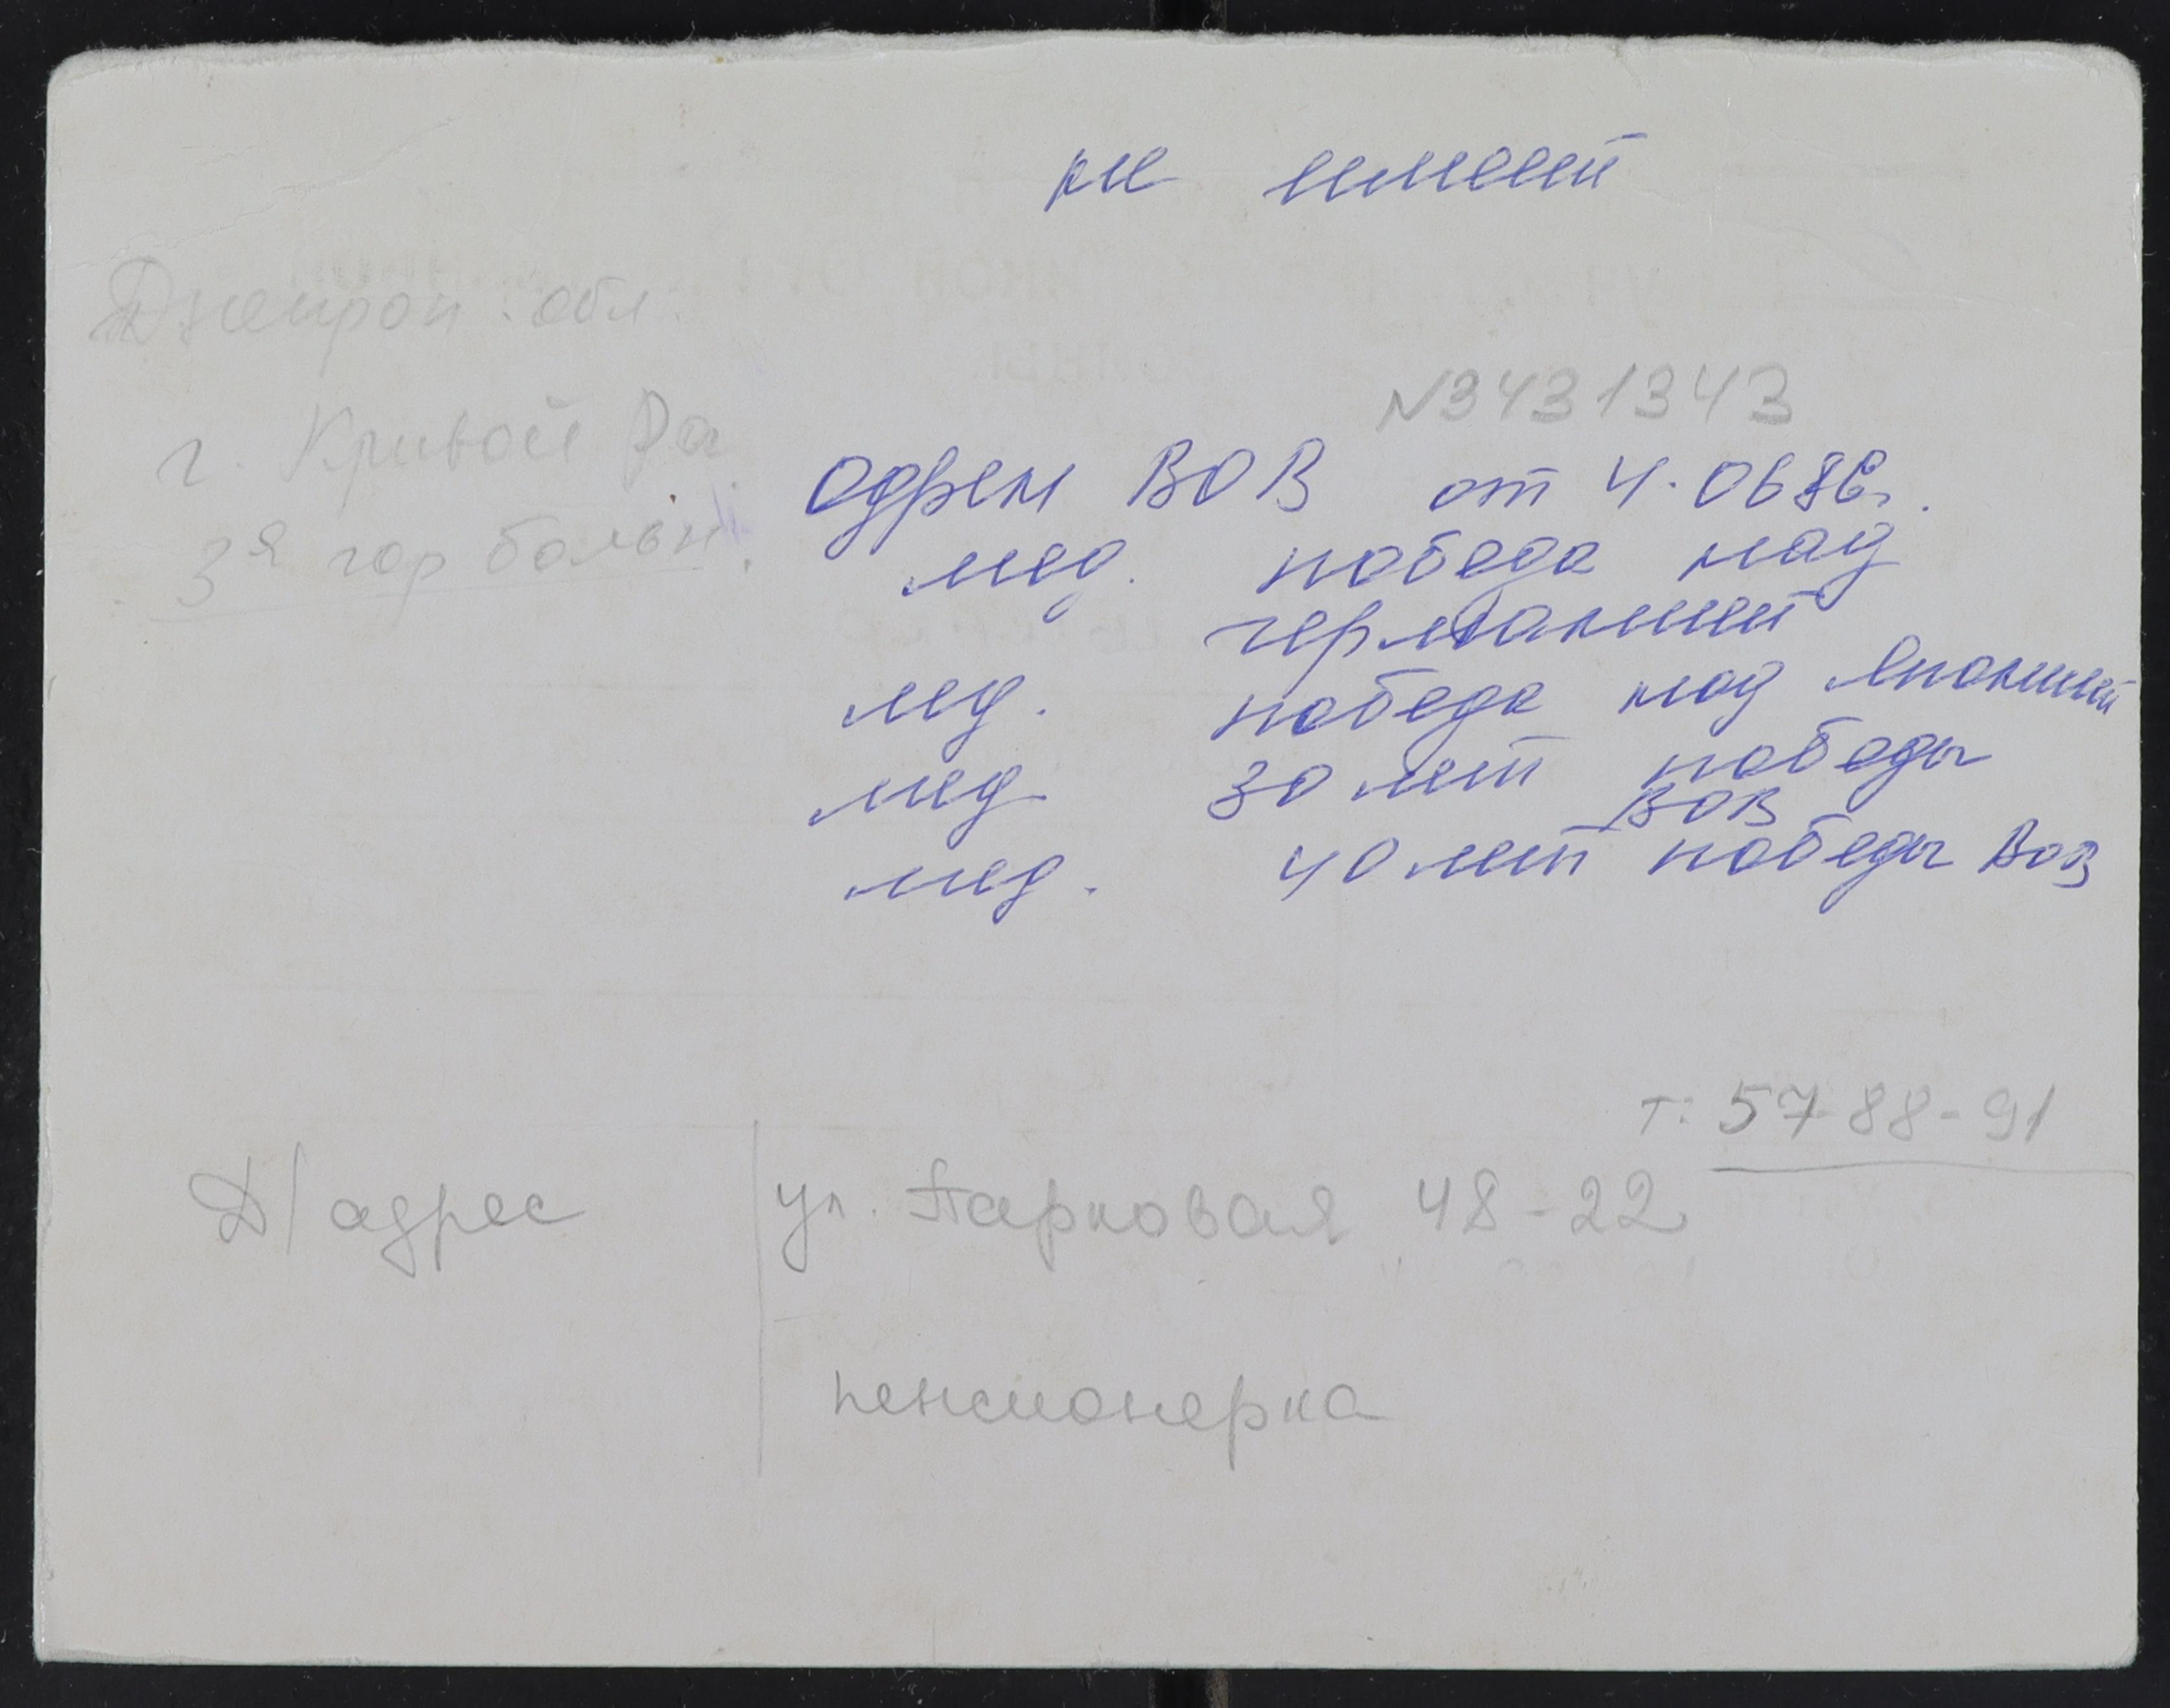 не имеет
Днепроп. обл.
г. Кривой Ро
3я гор больн.
N3431343
Орден ВОВ от 4.0686г.
мед. победа над
германией
мед. победа над Японией
мед 30 лет победы
ВОВ
мед. 40 лет победы Вов
т: 57-88-91
Д/адрес ул. Парковая 48-22
пенсионерка